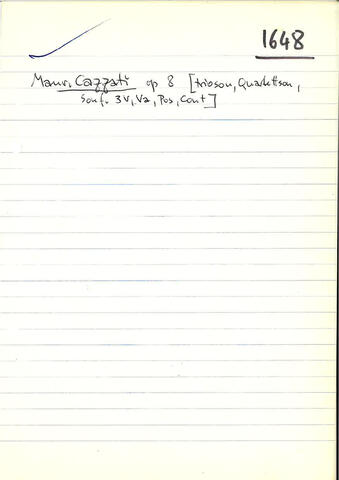 1648
Maur. Cazzati op 8 [trioson, Quartettson,
Sonf. 3V, Va, Pos, Cont]